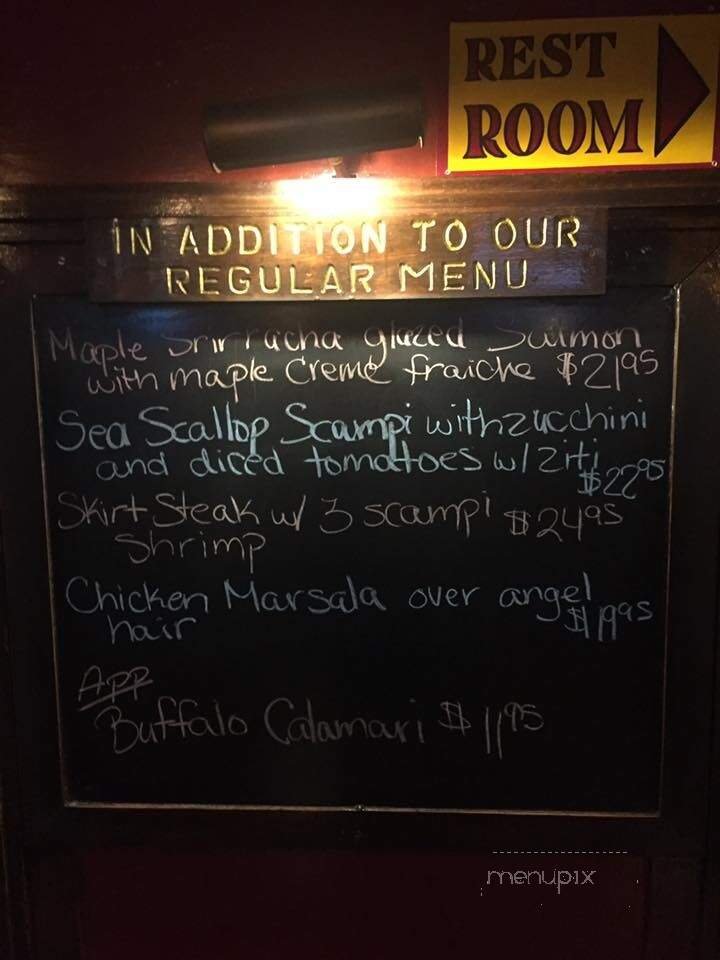 REST
ROOM
IN ADDITION TO OUR
REGULAR MENU
Maple Srirracha glazed Salmon
with maple Creme fraiche $21.95
Sea Scallop Scampi with zucchini
and diced tomatoes w/ ziti
$22.95
Skirt Steak w/ 3 scampi $24.95
Shrimp
Chicken Marsala over angel
hair $19.95
App
Buffalo Calamari $11.95
menupix